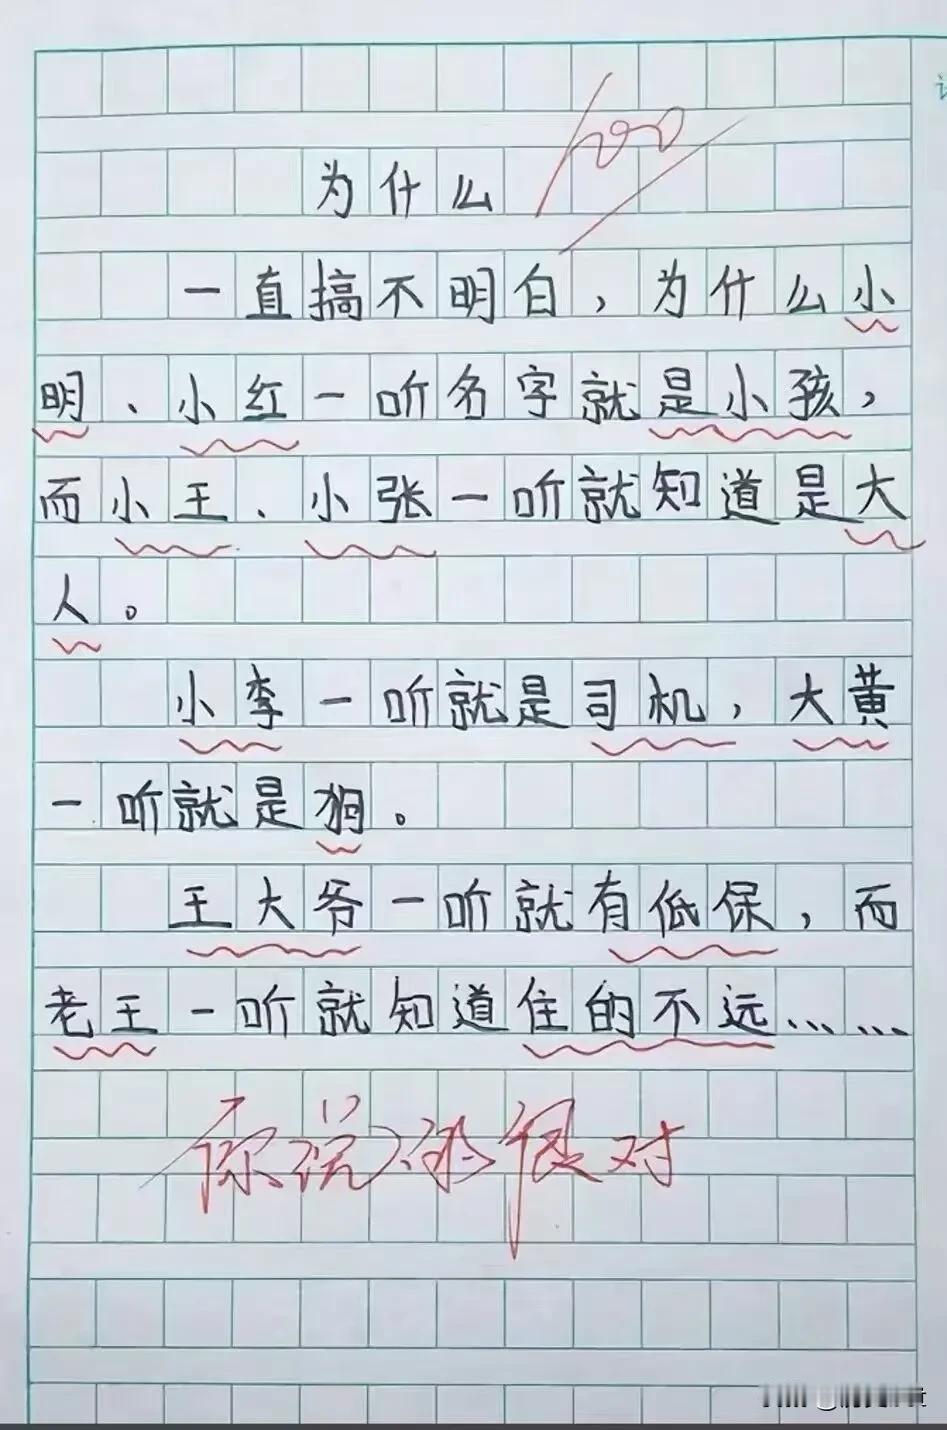 100
为什么
一直搞不明白，为什么小
明、小红一听名字就是小孩，
而小王、小张一听就知道是大
人。
小李一听就是司机，大黄
一听就是狗。
王大爷一听就有低保，而
老王一听就知道住的不远……
你说 很对